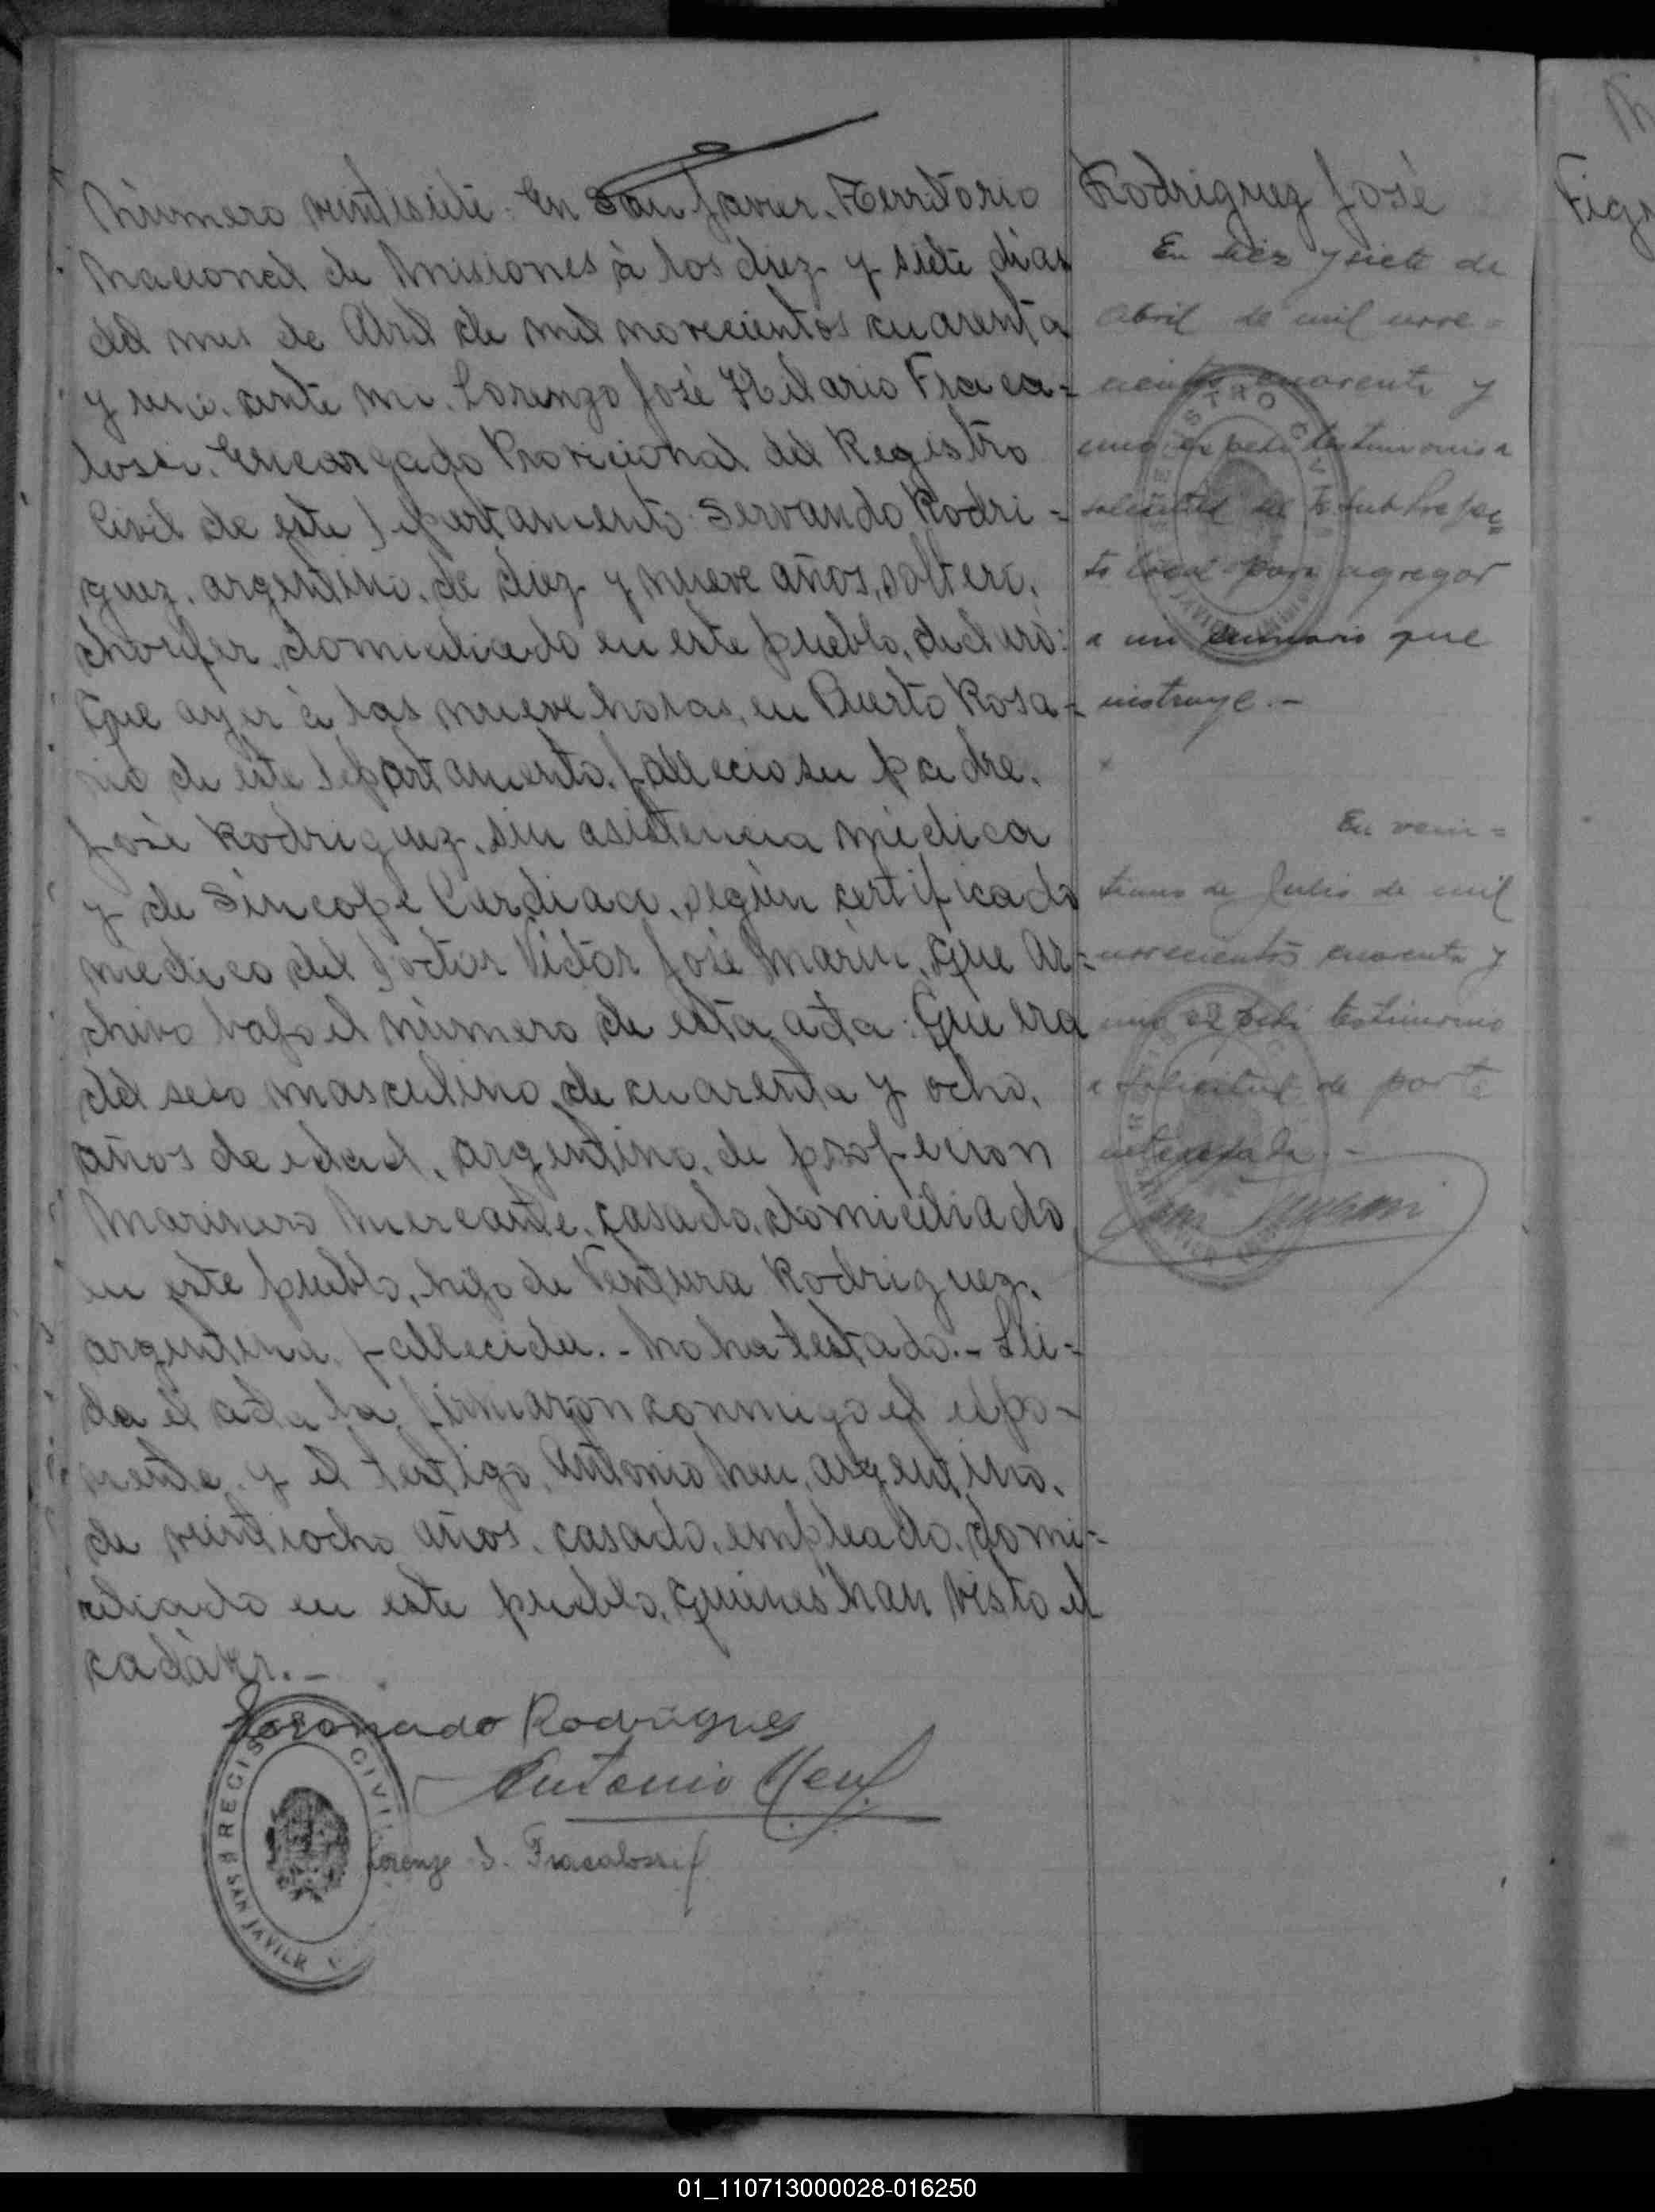 Número veintisiete. En San Javier, Territorio
Nacional de Misiones à los diez y siete dias
del mes de Abril de mil novecientos cuarenta
y uno, ante mi, Lorenzo José Hilario Fraca=
lossi, Encargado Provicional del Registro
Civil de este Departamento. Servando Rodri=
guez, argentino, de diez y nueve años, soltero,
choufer, domiciliado en este pueblo, declaró:
Que ayer à las nueve horas, en Puerto Rosa=
rio de este Departamento, fallecio su padre,
José Rodriguez, sin asistencia mèdica
y de Sincope Cardiaco, según certificado
mèdico del Doctor Victor José Marin, que ar=
chivo bajo el nùmero de esta acta: Que era
del sexo masculino, de cuarenta y ocho,
años de edad, argentino, de profecion
Marinero Mercante, casado, domiciliado
en este pueblo, hijo de Ventura Rodriguez,
argentina, fallecida.- No ha testado.- Lei=
da el acta la firmaron conmigo el expo-
nente, y el testigo, Antonio Neu, argentino,
de veintiocho años, casado, empleado, domi=
ciliado en este pueblo, quienes han visto el
cadáver.-
Rodrigues
Antonio Neu
Lorenzo J. Fracalossi
REGISTRO CIVIL
SAN JAVIER
Rodriguez José
En diez y siete de
abril de mil nove=
cientos cuarenta y
uno expedi testimonio a
solicitud del Sub Prefec=
to local para agregar
a un sumario que
instruye.-
En vein=
tiuno de Julio de mil
novecientos cuarenta y
uno expedi testimonio
a solicitud de parte
interesada.-
Figu
01_110713000028-016250